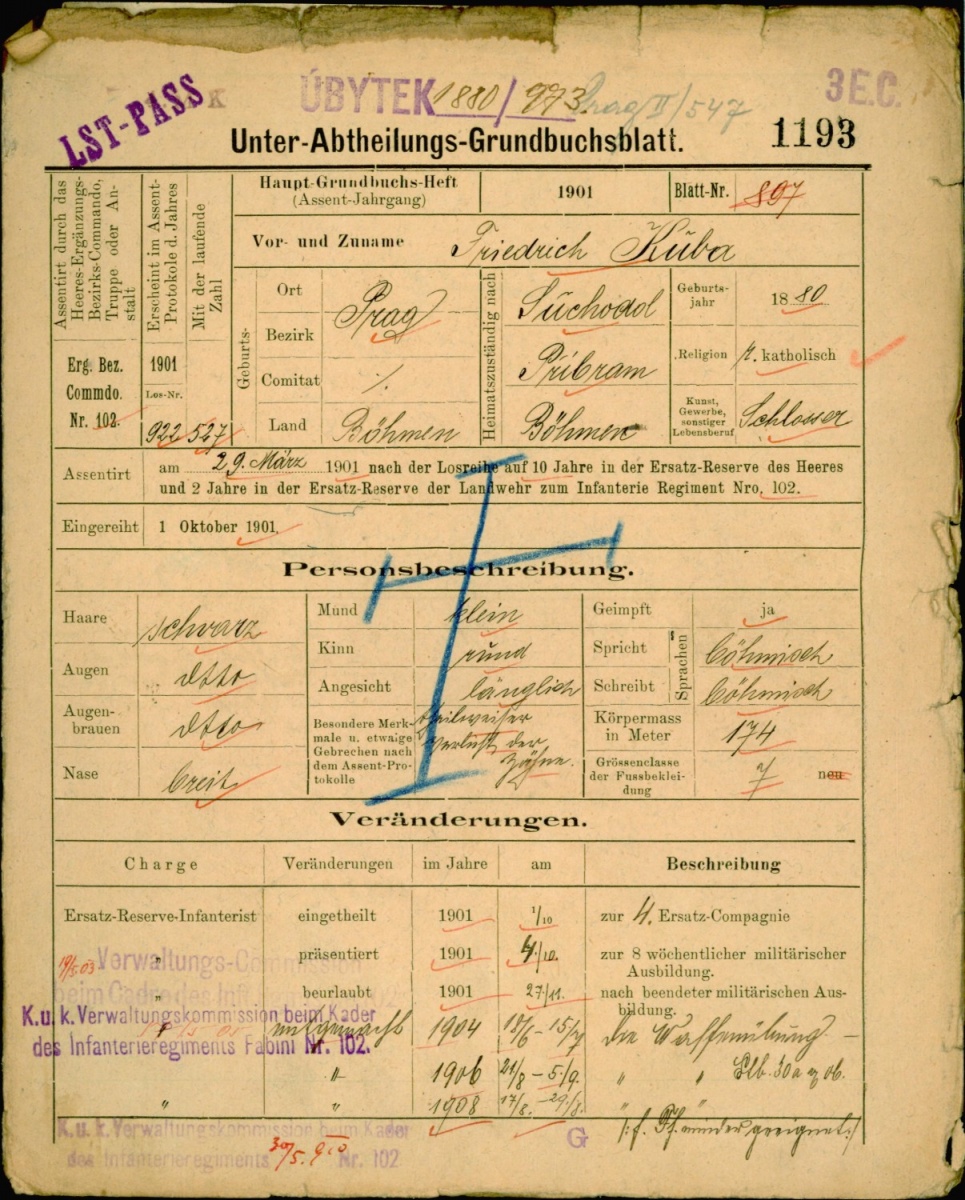 LST-PASS
ÚBYTEK 1880/973 Prag II/547
3 E.C.
Unter-Abtheilungs-Grundbuchsblatt. 1193
Assentirt durch das Heeres-Ergänzungs-Bezirks-Commando, Truppe oder Anstalt
Erscheint im Assent-Protokole d. Jahres
Mit der laufende Zahl
Erg. Bez. Commdo. Nr. 102.
1901
Los-Nr.
922 527
Haupt-Grundbuchs-Heft
(Assent-Jahrgang)
1901
Blatt-Nr. 897
Vor- und Zuname Friedrich Kuba
Geburts-
Ort
Bezirk
Prag
Comitat ·/.
Land Böhmen
Heimatszuständig nach
Suchodol
Pribram
Böhmen
Geburts-
jahr 1880
Religion r. katholisch
Kunst,
Gewerbe,
sonstiger
Lebensberuf Schlosser
Assentirt am 29. März 1901 nach der Losreihe auf 10 Jahre in der Ersatz-Reserve des Heeres
und 2 Jahre in der Ersatz-Reserve der Landwehr zum Infanterie Regiment Nro. 102.
Eingereiht 1 Oktober 1901.
Personsbeschreibung.
Haare schwarz
Augen dtto
Augen-
brauen dtto
Nase breit
Mund klein
Kinn rund
Angesicht länglich
Besondere Merk-
male u. etwaige
Gebrechen nach
dem Assent-Pro-
tokolle
theilweiser
verlust der
Zähne.
Geimpft ja
Sprachen
Spricht böhmisch
Schreibt böhmisch
Körpermass
in Meter 174
Grössenclasse
der Fussbeklei-
dung 7 neu
Veränderungen.
Charge Veränderungen im Jahre am Beschreibung
Ersatz-Reserve-Infanterist eingetheilt 1901 1/10 zur 4. Ersatz-Compagnie
" präsentiert 1901 4/10. zur 8 wöchentlicher militärischer
Ausbildung.
19/5.03
Verwaltungs-Commission
beim Cadre des Inf. 102
" beurlaubt 1901 27/11. nach beendeter militärischen Aus-
bildung.
K.u.k. Verwaltungskommission beim Kader
des Infanterieregiments Fabini Nr. 102.
mitgemacht 1904 18/6 – 15/7 die Waffenübung –
" 1906 21/8 – 5/9. " "
" " 1908 17/8. – 29/8. "
K.u.k. Verwaltungskommission beim Kader
des Infanterieregiments Nr. 102
30/5. 910
G